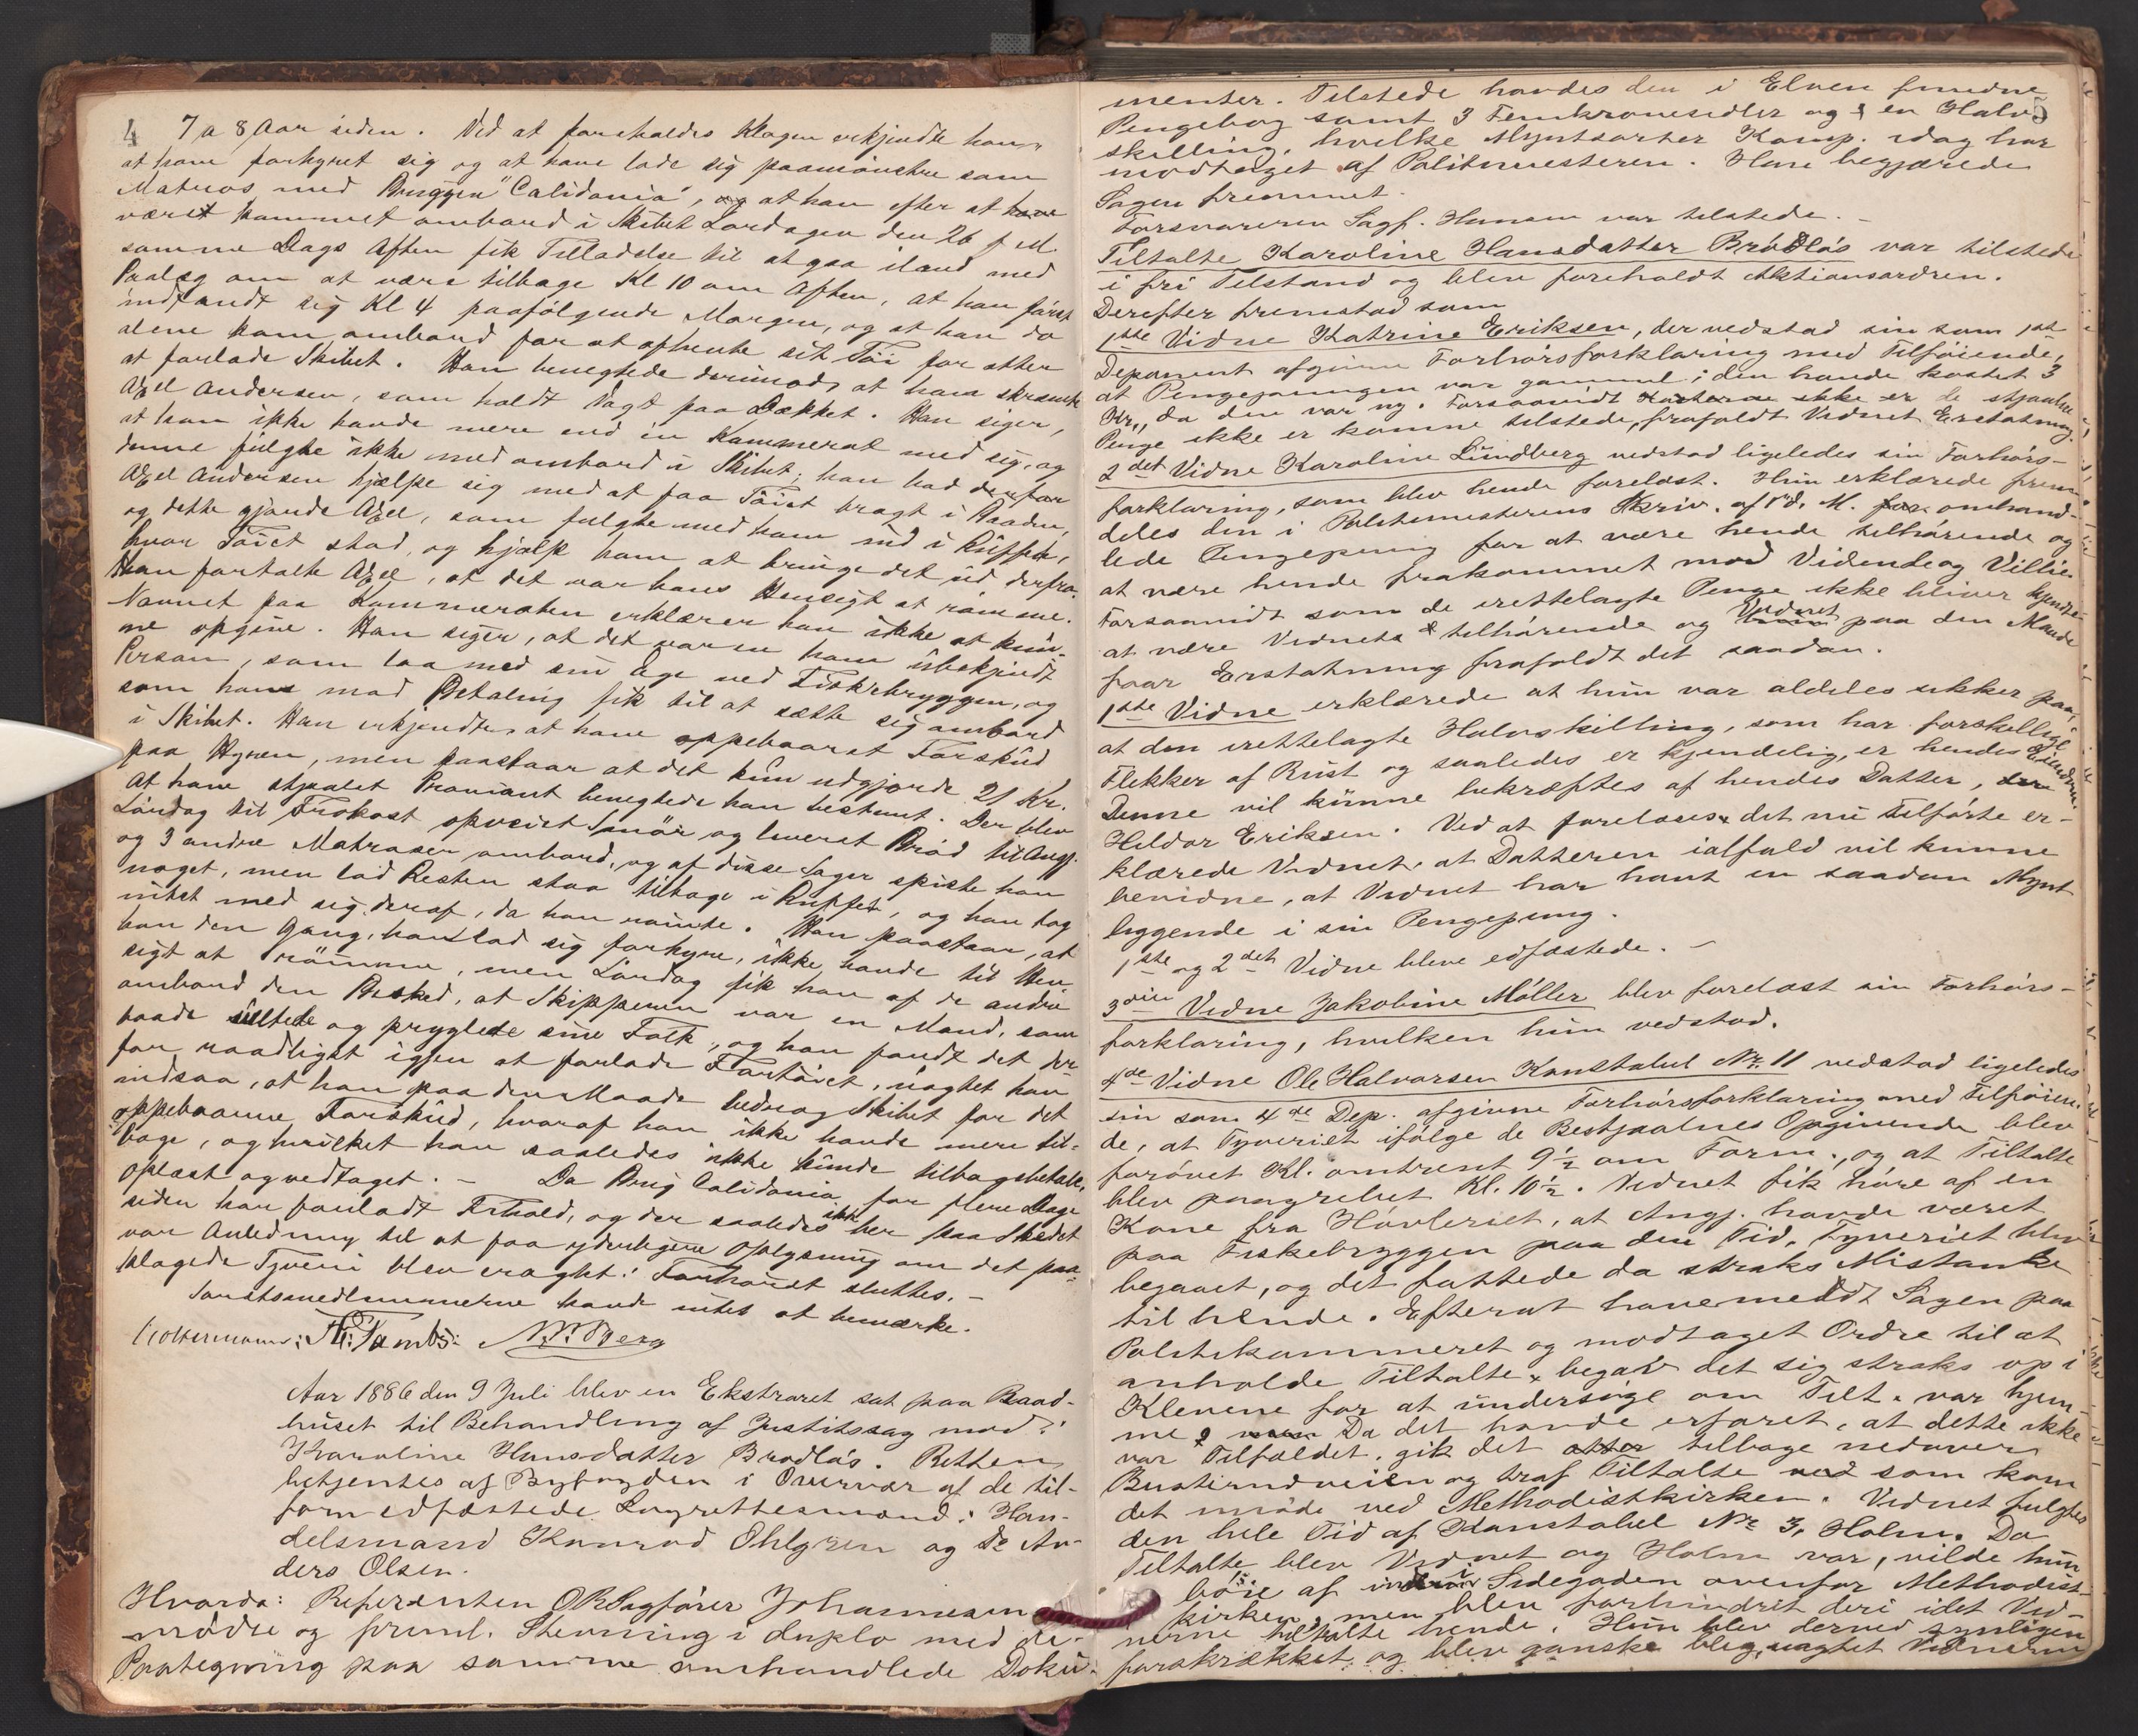 4
7 a 8 Aar siden. Ved at foreholdes Klagen erkjendte han,
at have forhyret sig og at have ladt sig paamönstre som
Matros med Briggen "Calidonia", og at han efter at have
været kommet ombord i Skibet Lørdagen den 26 f. M.
samme Dags Aften fik Tilladelse til at gaa iland med
Paalæg om at være tilbage Kl 10 om Aften, at han först
indfandt sig Kl 4 paafölgende Morgen, og at han da
alene kom ombord for at afhente sit Töi for atter
at forlade Skibet. Han benegtede derimod, at have skræmt
Axel Andersen, som holdt Vagt paa Dækket. Han siger,
at han ikke havde mere end en Kammerat med sig, og
denne fulgte ikke med ombord i Skibet; han bad derfor
Axel Andersen hjælpe sig med at faa Töiet bragt i Baaden,
og dette gjorde Axel, som fulgte med ham ind i Ruffen,
hvor Töiet stod, og hjalp ham at bringe det ud derfra.
Han fortalte Axel, at det var hans Hensigt at römme.
Navnet paa Kammeraten erklærer han ikke at kun-
ne opgive. Han siger, at det var en ham ubekjendt
Person, som laa med sin Ege ved Fiskebryggen, og
som han mod Betaling fik til at sætte sig ombord
i Skibet. Han erkjendte, at have oppebaaret Forskud
paa Hyren, men paastaar at det kun udgjorde 21 Kr.
At have stjaalet Proviant benegtede han bestemt. Der blev
Lördag til Frokost opveiet Smör og leveret Bröd til Angj.
og 3 andre Matroser ombord, og af disse Sager spiste han
noget, men lod Resten staa tilbage i Ruffet, og han tog
intet med sig deraf, da han römte. Han paastaar, at
han den Gang, han lod sig forhyre, ikke havde til Hen-
sigt at römme, men Lördag fik han af de andre
ombord den Besked, at Skipperen var en Mand, som
baade sultede og pryglede sine Folk, og han fandt det der-
for raadligst igjen at forlade Fartöiet, uagtet han
indsaa, at han paa den Maade bedrog Skibet for det
oppebaarne Forskud, hvoraf han ikke havde mere til-
bage, og hvilket han saaledes ikke kunde tilbagebetale.
Oplæst og vedtaget. – Da Brig Calidonia for flere Dage
siden har forladt Frhald, og der saaledes ikke her paa Stedet
var Anledning til at faa yderligere Oplysning om det paa-
klagede Tyveri blev eragtet: Forhöret sluttes. –
Forætsmedlemmerne havde intet at bemærke.
Coltermann: Th: Tambs: N.N. Berg
Aar 1886 den 9 Juli blev en Ekstraret sat paa Raad-
huset til Behandling af Justitssag mod:
Karoline Hansdatter Brodlös. Retten
betjentes af Byfogden i Overvær af de til-
forn edfæstede Lagrettesmænd: Han-
delsmand Konrad Ohlgren og Do An-
ders Olsen.
Hvorda: Referenten ORSagförer Johannesen
mödte og freml. Stevning i duplo med de-
Paategning paa samme omhandlede Doku-
5
menter. Tilstede havdes den i Elven fundne
Pengebog samt 3 Femkronesedler og en Halv-
skilling, hvilke Myntsorter Komp. idag har
modtaget af Politimesteren. Han begjærede
Sagen fremmet.
Forsvareren Sagf. Hansen var tilstede. –
Tiltalte Karoline Hansdatter Brödlös var tilstede
i fri Tilstand og blev foreholdt Aktionsordren.
Derefter fremstod som
1ste Vidne Katrine Eriksen, der vedstod sin som 1st
Deponent afgivne Forhörsforklaring med Tilföiende,
at Pengepungen var gammel; den havde kostet 3
Kr., da den var ny. Forsaavidt de stjaalne
Penge ikke er komne tilstede, frafaldt Vidnet Erstatning.
2det Vidne Karoline Lundberg vedstod ligeledes sin Forhörs-
forklaring, som blev hende forelæst. Hun erklærede frem-
deles den i Politimesterens Skriv. af 1 d. M. omhand-
lede Pengepung for at være hende tilhörende og
at være hende frakommet mod Vidende og Villie.
Forsaavidt som de irettelagte Penge ikke bliver kjendte
at være Vidnets tilhörende og Vidnet paa den Maade
faar Erstatning frafaldt det saadan.
1ste Vidne erklærede at hun var aldeles sikker paa,
at den irettelagte Halvskilling, som har forskellige
Flekker af Rust og saaledes er kjendelig, er hendes Eiendom.
Denne vil kunne bekræftes af hendes Datter,
Hildor Eriksen. Ved at forelæses det nu tilförte er-
klærede Vidnet, at Datteren ialfald vil kunne
bevidne, at Vidnet har havt en saadan Mynt
liggende i sin Pengepung.
1ste og 2det Vidne bleve edfæstede. –
3die Vidne Jakobine Möller blev forelæst sin Forhörs-
forklaring, hvilken hun vedstod.
4de Vidne Ole Halvorsen Konstabel No. 11 vedstod ligeledes
sin som 4de Dep. afgivne Forhörsforklaring med Tilföien-
de, at Tyveriet ifölge de Bestjaalnes Opgivende blev
forövet Kl. omtrent 9½ om Form., og at Tiltalte
blev paagrebet Kl. 10½. Vidnet fik höre af en
Kone fra Hövleriet, at Angj. havde været
paa Fiskebryggen paa den Tid, Tyveriet blev
begaaet, og det fattede da straks Mistanke
til hende. Efter at have meldt Sagen paa
Politikammeret og modtaget Ordre til at
anholde Tiltalte, begav det sig straks op i
Klevene for at undersöge om Tilt. var hjem-
me. Da det havde erfaret, at dette ikke
var Tilfældet, gik det tilbage nedover
Busterudveien og traf Tiltalte som kom
det imöde ved Methodistkirken. Vidnet fulgtes
den hele Tid af Konstabel No 3, Holm. Da
Tiltalte blev Vidnet og Holm var, vilde hun
böie af i Sidegaden ovenfor Methodist-
kirken, men blev forhindret deri idet Vid-
nerne tiltalte hende. Hun blev derved synligen
forskrækket og blev ganske bleg, uagtet Vidnerne